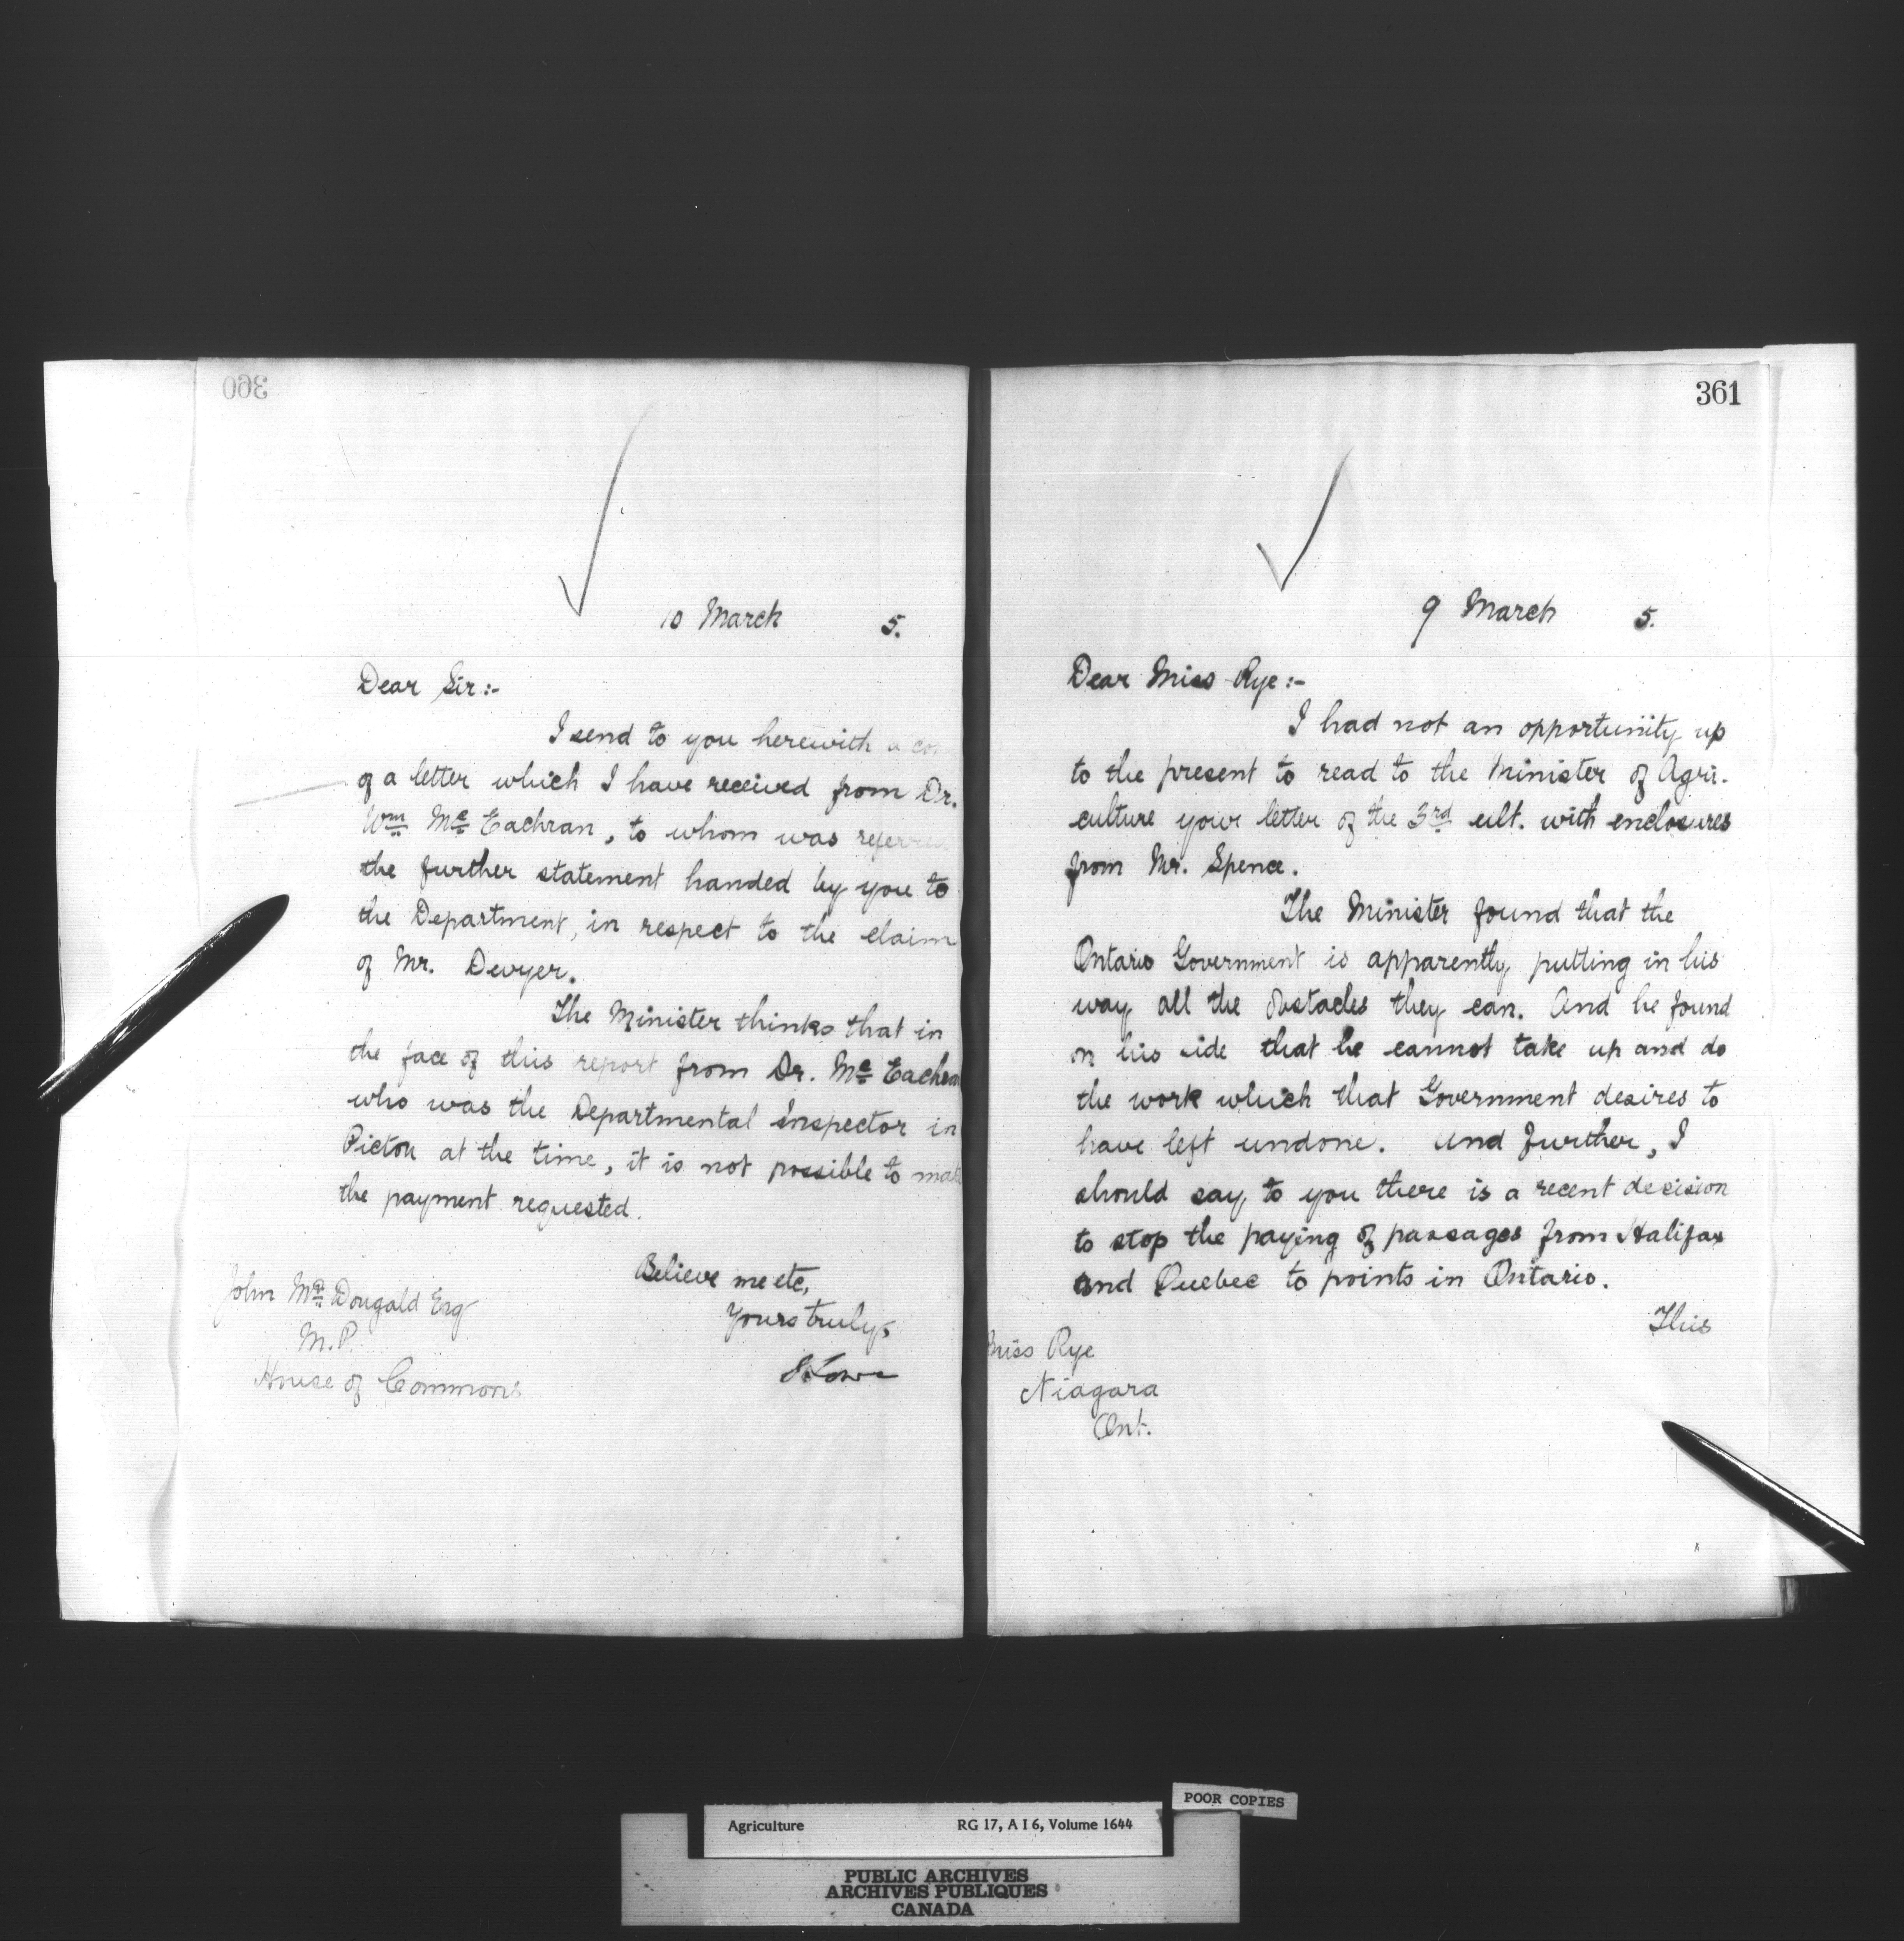 360
10 March 5.
Dear Sir:-
I send to you herewith a
of a letter which I have received from Dr.
Wm Mc Eachran, to whom was referred
the further statement handed by you to
the Department, in respect to the claim
of Mr. Dwyer.
The Minister thinks that in
the face of this report from Dr. Mc Eachran
who was the Departmental Inspector in
Pictou at the time, it is not possible to make
the payment requested.
Believe me etc,
Yours truly,
J Lowe
John Mc Dougald Esq
M.P.
House of Commons
361
9 March 5.
Dear Miss Rye:-
I had not an opportunity up
to the present to read to the Minister of Agri-
culture your letter of the 3rd ult. with enclosures
from Mr. Spence.
The Minister found that the
Ontario Government is apparently putting in his
way all the obstacles they can. And he found
on his side that he cannot take up and do
the work which that Government desires to
have left undone. And further, I
should say to you there is a recent decision
to stop the paying of passages from Halifax
and Quebec to points in Ontario.
This
Miss Rye
Niagara
Ont.
POOR COPIES
Agriculture RG 17, A I 6, Volume 1644
PUBLIC ARCHIVES
ARCHIVES PUBLIQUES
CANADA